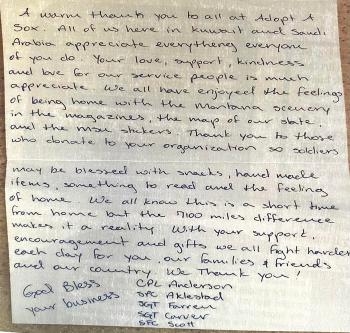 A warm thank you to all at Adopt A
Sox. All of us here in Kuwait and Saudi
Arabia appreciate everything everyone
of you do. Your love, support, kindness
and love for our service people is much
appreciate. We all have enjoyed the feelings
of being home with the Montana scenery
in the magazines, the map of our state,
and the MSU stickers. Thank you to those
who donate to your organization so soldiers
may be blessed with snacks, hand made
items, something to read and the feeling
of home. We all know this is a short time
from home but the 7100 miles difference
makes it a reality. With your support,
encouragement and gifts we all fight harder
each day for you, our families & friends
and our country. We Thank you!
God Bless
your business
CPL Anderson
SPC Aklestad
SGT Farren
SGT Carver
SFC Scott